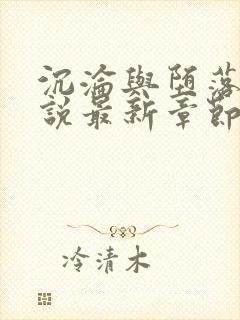 沉淪與堕落
說最新章節
冷清木